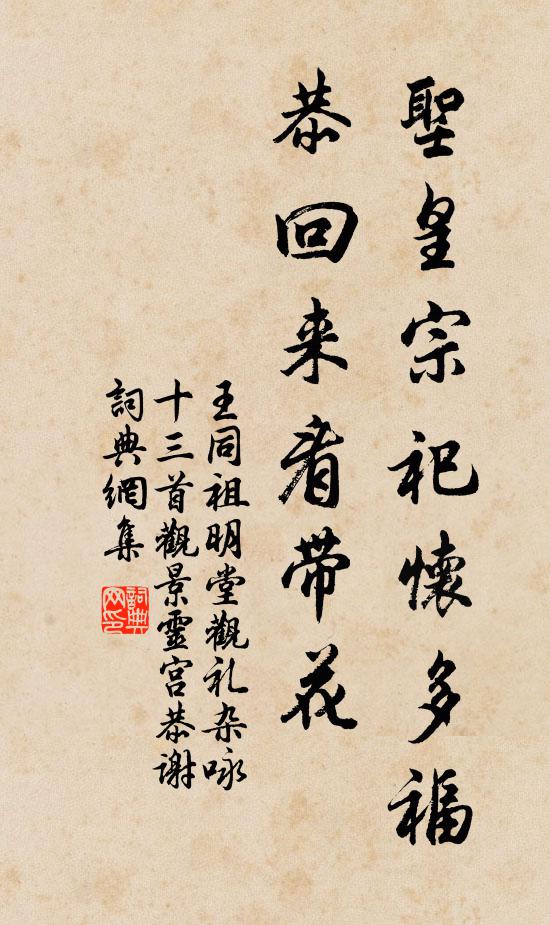 聖皇宗祀懷多福
恭回来看帶花
王同祖明堂觀礼杂咏
十三首觀景靈宫恭谢
詞典網集
詞典网印